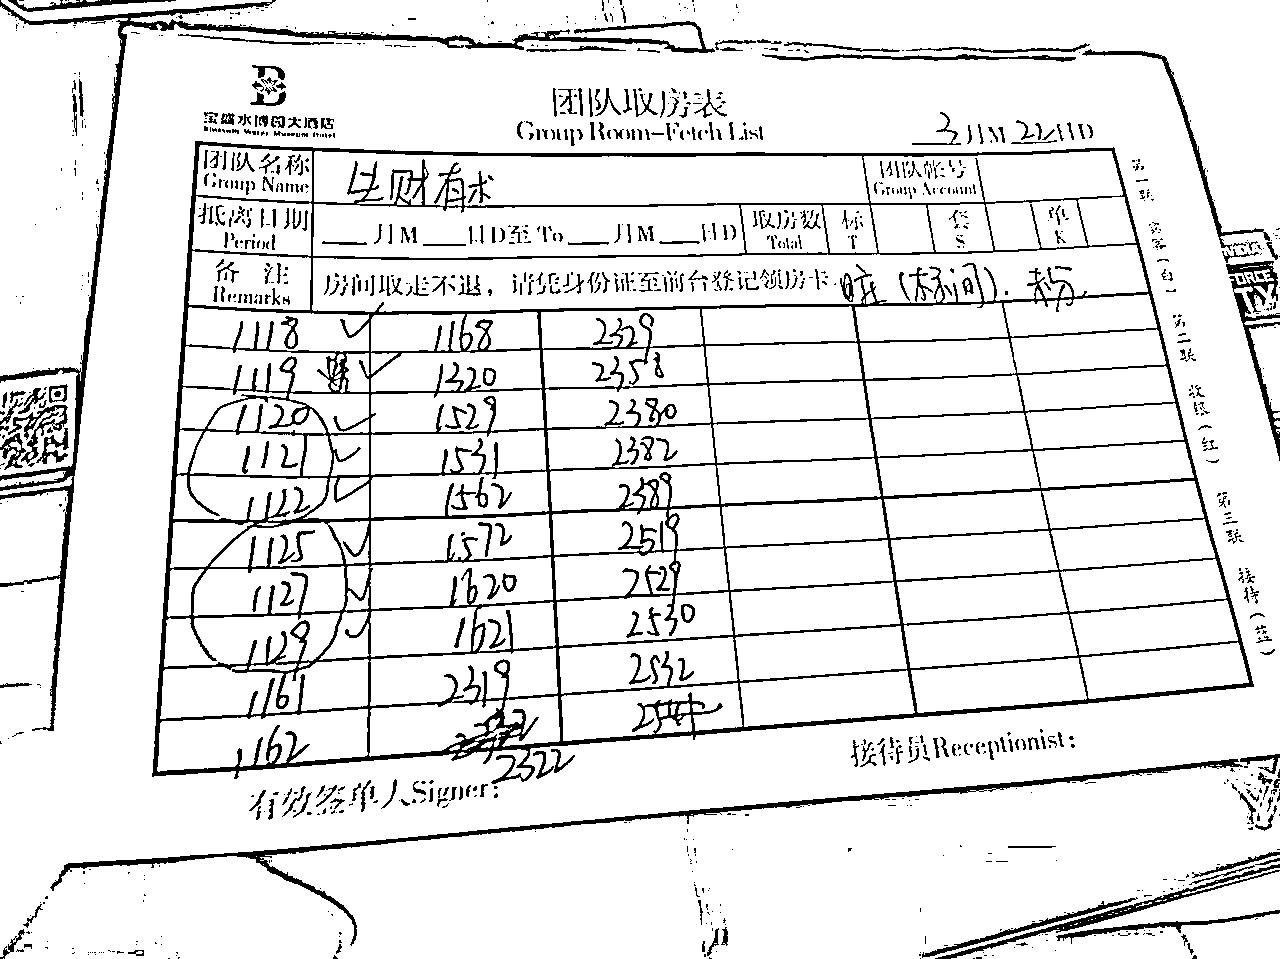 宝盛水博园大酒店
团队取房表
Group Room-Fetch List
3月M 22日D
团队名称 Group Name 生财有术 团队帐号 Group Account
抵离日期 Period ___月M ___日D至To ___月M ___日D 取房数 Total 标 T 套 S 单 K
备注 Remarks 房间取走不退，请凭身份证至前台登记领房卡.
1118 1168 2329
1119 1320 2358
1120 1529 2380
1121 1531 2382
1122 1562 2389
1125 1572 2519
1127 1620 2529
1129 1621 2530
1161 2319 2532
1162 2322
有效签单人Signer:
接待员Receptionist:
第一联 宾客(白) 第二联 收银(红) 第三联 接待(蓝)